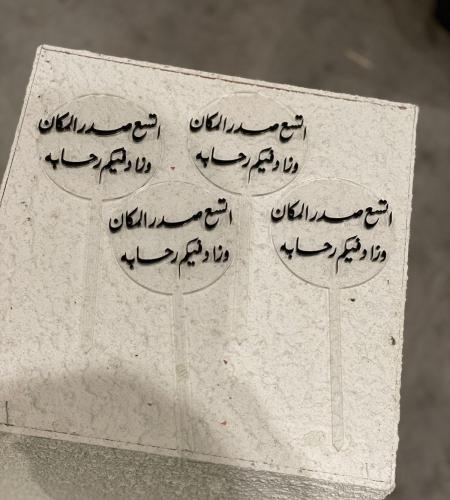 اتسع صدر المكان
وزاد فيكم رحابه
اتسع صدر المكان
وزاد فيكم رحابه
اتسع صدر المكان
وزاد فيكم رحابه
اتسع صدر المكان
وزاد فيكم رحابه